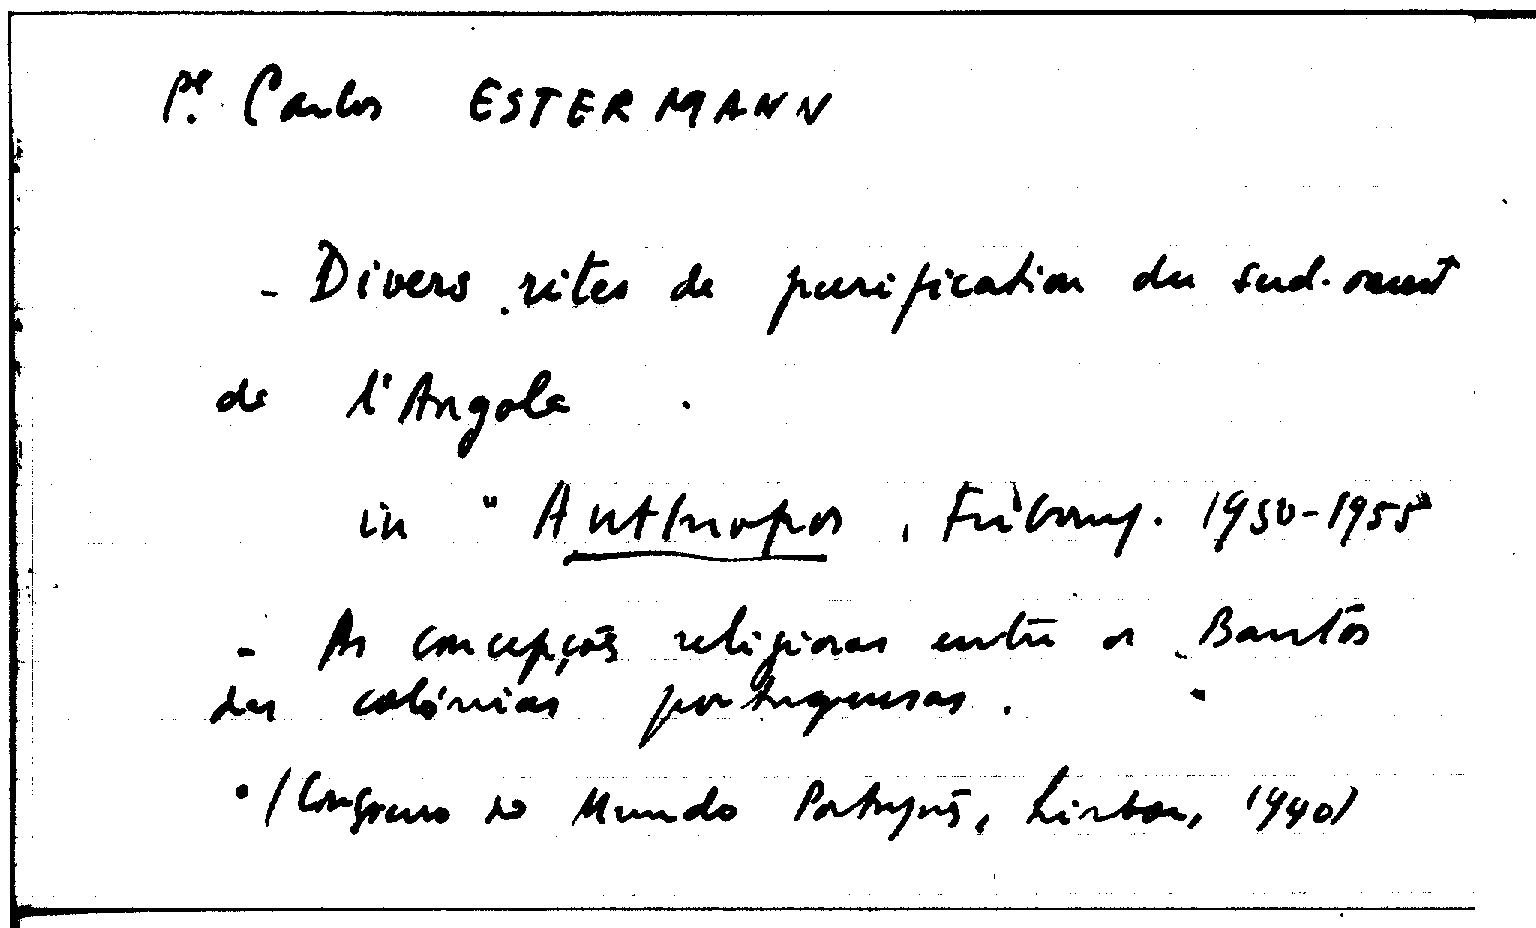 Pe. Carlos ESTERMANN
- Divers rites de purification du sud-ouest
de l'Angola
in "Anthropos, Fribourg. 1950-1955
- As concepções religiosas entre os Bantos
das colónias portuguesas.
(Congresso do Mundo Português, Lisboa, 1940)